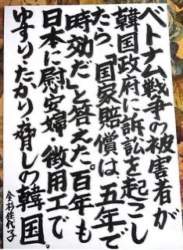 ベトナム戦争の被害者が
韓国政府に訴訟を起こし
たら、国家賠償は、五年で
時効だと答えた。百年も
日本に慰安婦、徴用工で
ゆすり・たかり・脅しの韓国。